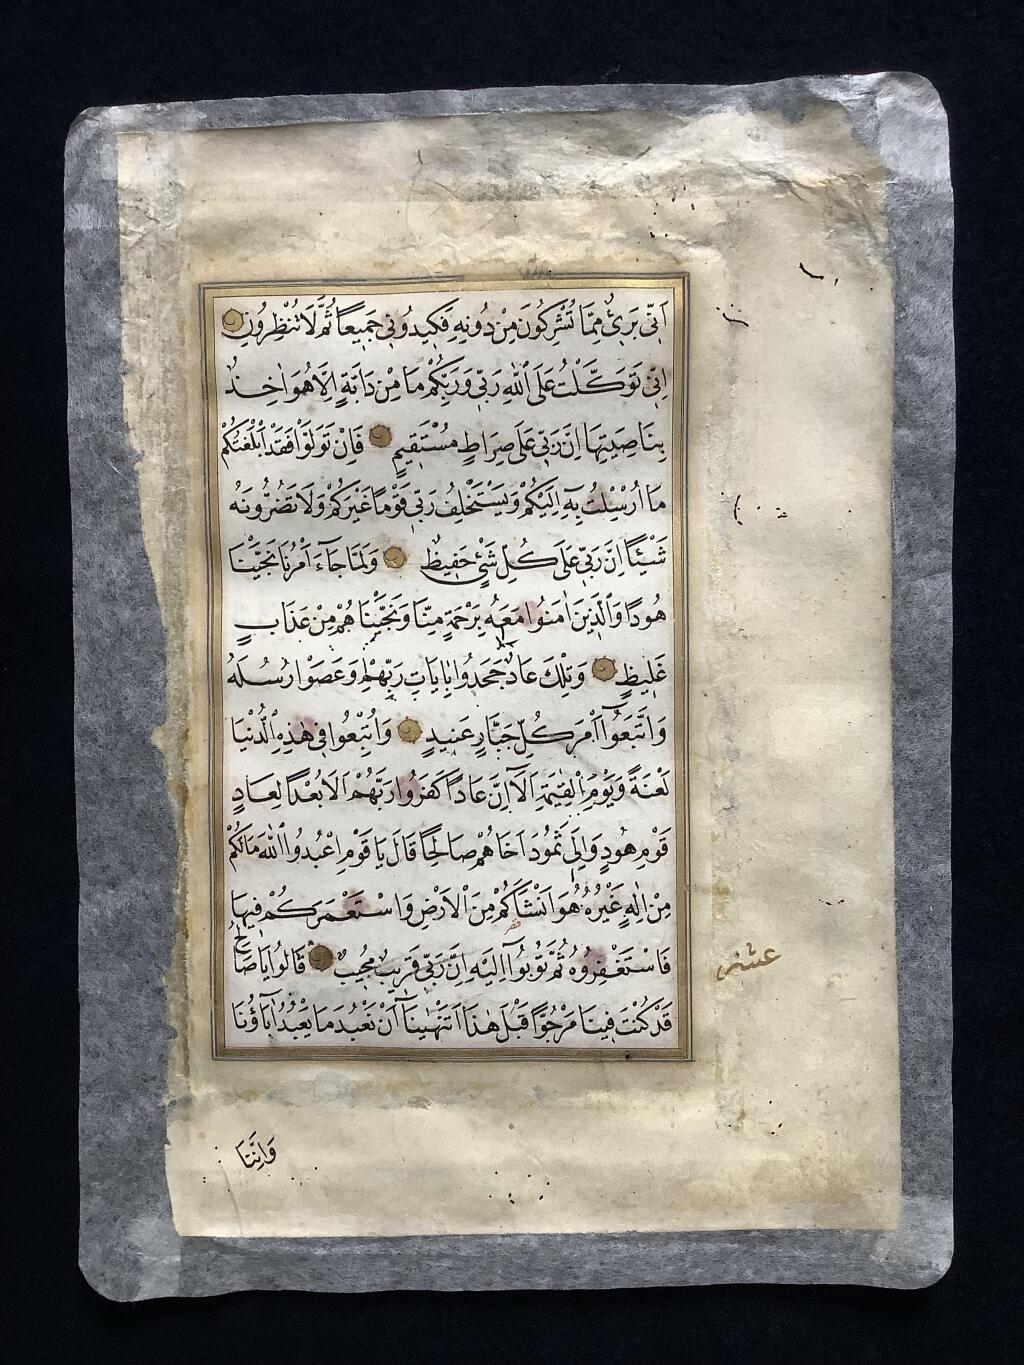 اَنّٖي بَرٖيءٌ مِمَّا تُشْرِكُونَ مِنْ دُونِهٖ فَكٖيدُونٖي جَمٖيعًا ثُمَّ لَا تُنْظِرُونِ
اِنّٖي تَوَكَّلْتُ عَلَى اللّٰهِ رَبّٖي وَرَبِّكُمْ مَا مِنْ دَابَّةٍ اِلَّا هُوَ اٰخِذٌ
بِنَاصِيَتِهَا اِنَّ رَبّٖي عَلٰى صِرَاطٍ مُسْتَقٖيمٍ فَاِنْ تَوَلَّوْا فَقَدْ اَبْلَغْتُكُمْ
مَا اُرْسِلْتُ بِهٖٓ اِلَيْكُمْ وَيَسْتَخْلِفُ رَبّٖي قَوْمًا غَيْرَكُمْ وَلَا تَضُرُّونَهُ
شَيْئًا اِنَّ رَبّٖي عَلٰى كُلِّ شَيْءٍ حَفٖيظٌ وَلَمَّا جَٓاءَ اَمْرُنَا نَجَّيْنَا
هُودًا وَالَّذٖينَ اٰمَنُوا مَعَهُ بِرَحْمَةٍ مِنَّا وَنَجَّيْنَاهُمْ مِنْ عَذَابٍ
غَلٖيظٍ وَتِلْكَ عَادٌ جَحَدُوا بِاٰيَاتِ رَبِّهِمْ وَعَصَوْا رُسُلَهُ
وَاتَّبَعُٓوا اَمْرَ كُلِّ جَبَّارٍ عَنٖيدٍ وَاُتْبِعُوا فٖي هٰذِهِ الدُّنْيَا
لَعْنَةً وَيَوْمَ الْقِيٰمَةِ اَلَٓا اِنَّ عَادًا كَفَرُوا رَبَّهُمْ اَلَا بُعْدًا لِعَادٍ
قَوْمِ هُودٍ وَاِلٰى ثَمُودَ اَخَاهُمْ صَالِحًا قَالَ يَا قَوْمِ اعْبُدُوا اللّٰهَ مَا لَكُمْ
مِنْ اِلٰهٍ غَيْرُهُ هُوَ اَنْشَاَكُمْ مِنَ الْاَرْضِ وَاسْتَعْمَرَكُمْ فٖيهَا
فَاسْتَغْفِرُوهُ ثُمَّ تُوبُٓوا اِلَيْهِ اِنَّ رَبّٖي قَرٖيبٌ مُجٖيبٌ قَالُوا يَا صَالِحُ
قَدْ كُنْتَ فٖينَا مَرْجُوًّا قَبْلَ هٰذَا اَتَنْهٰينَٓا اَنْ نَعْبُدَ مَا يَعْبُدُ اٰبَٓاؤُنَا
عشر
وَاِنَّنَا